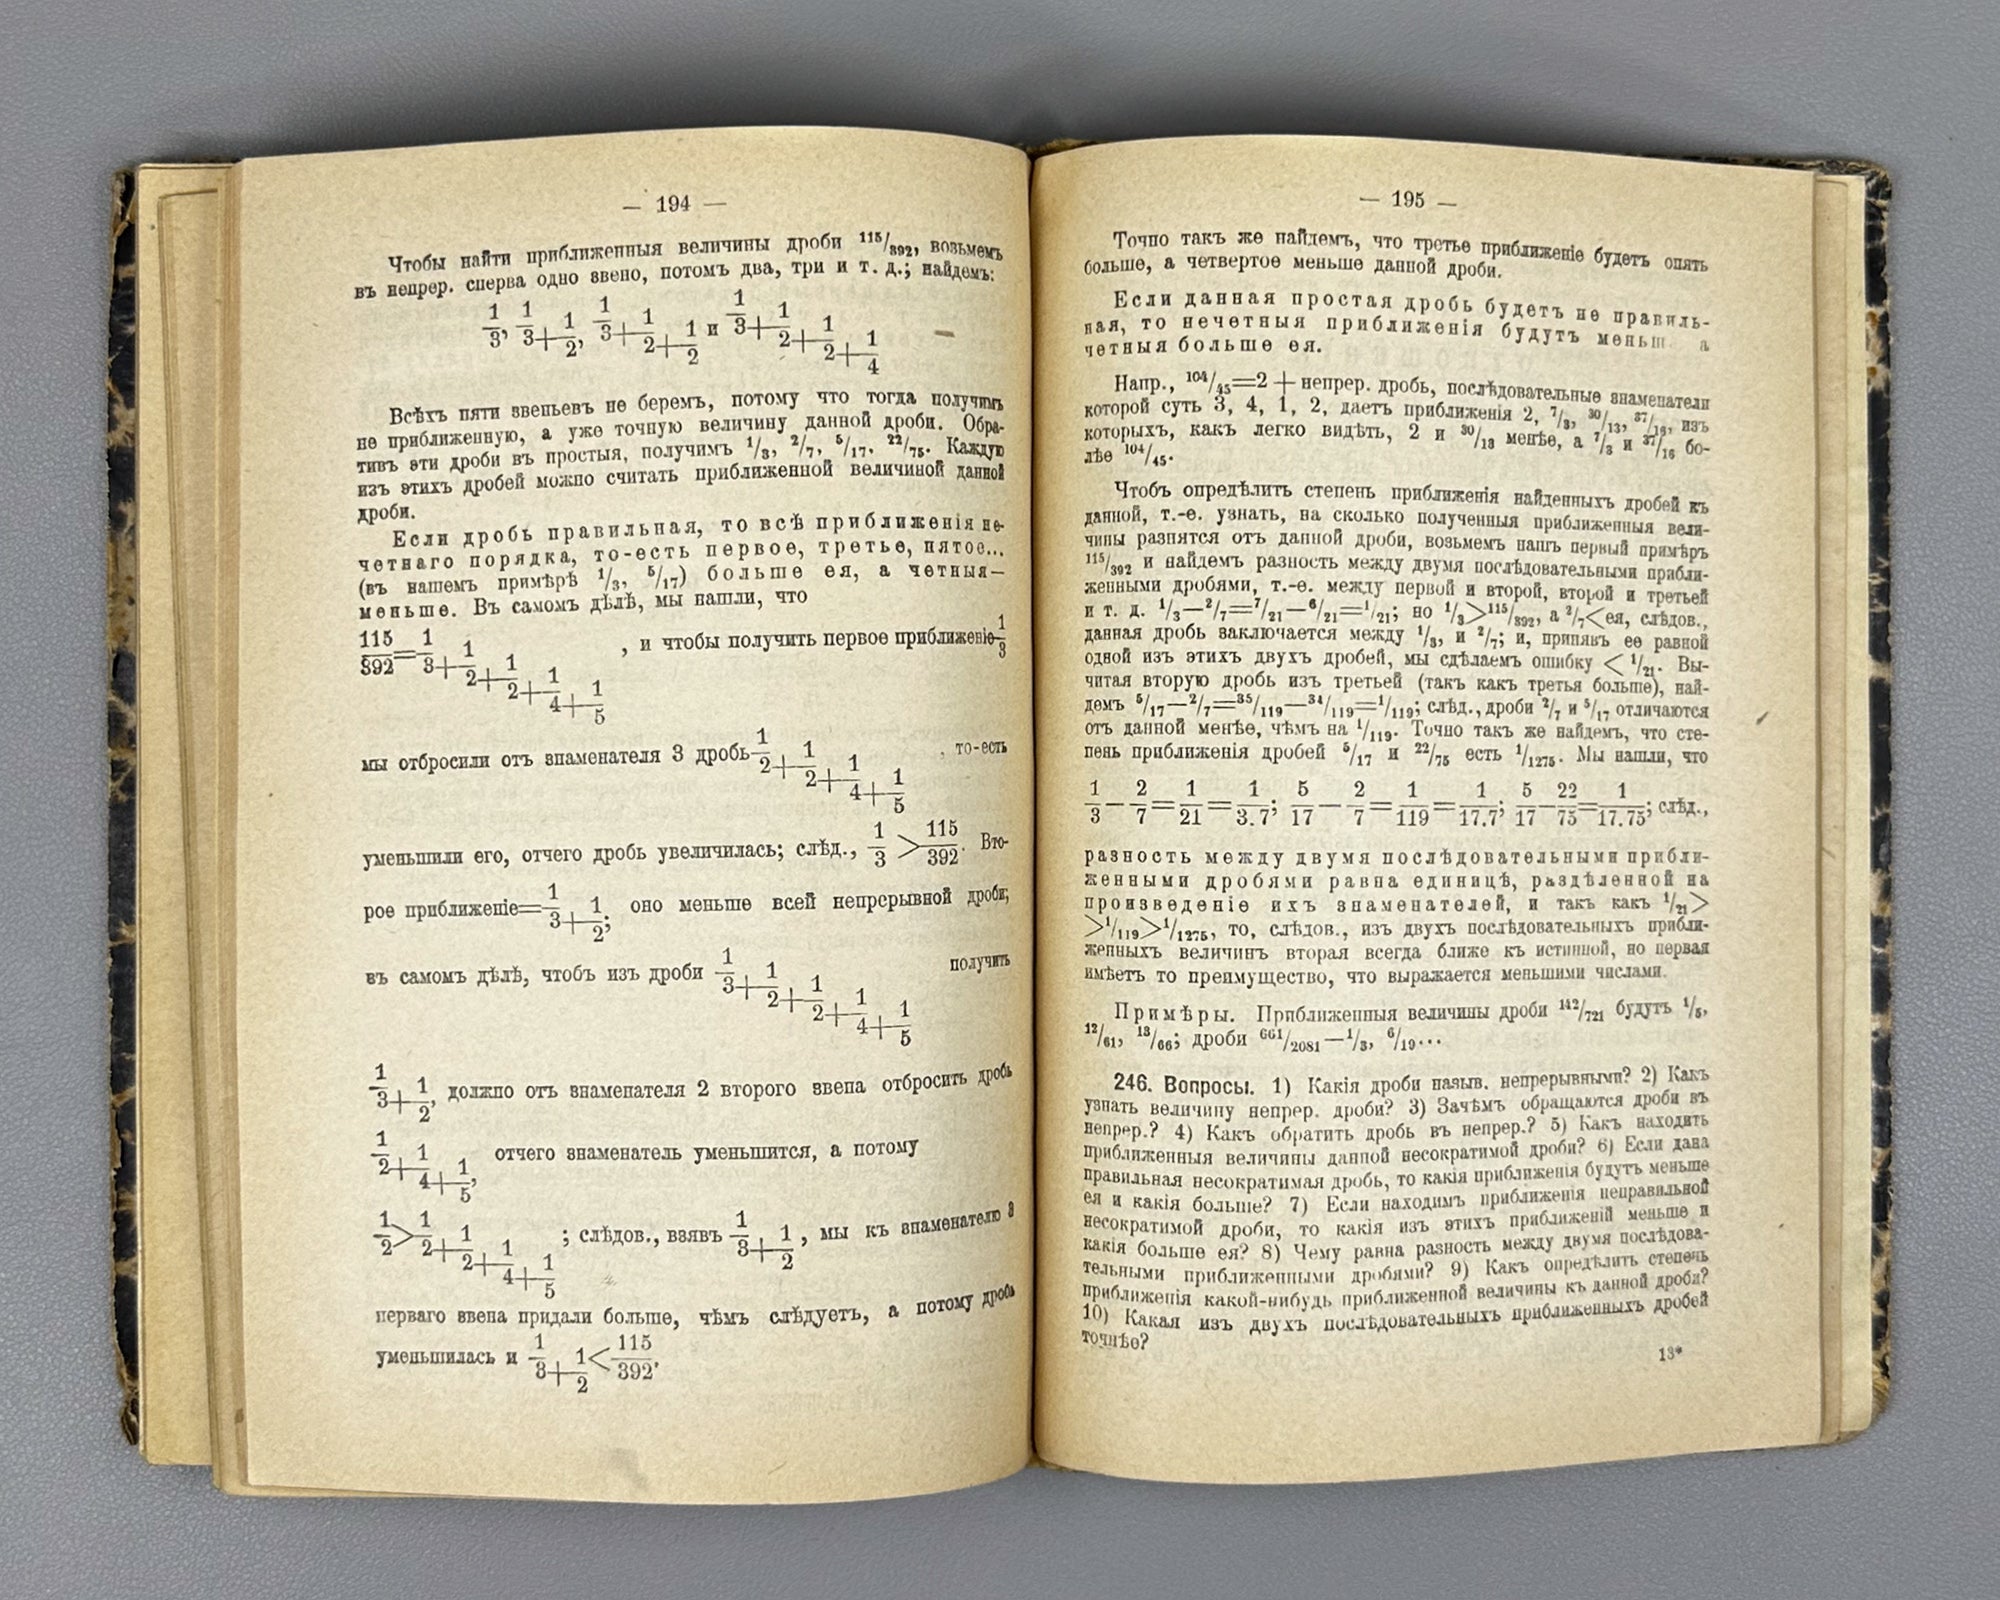 — 194 —
Чтобы найти приближенныя величины дроби 115/392, возьмемъ
въ непрер. сперва одно звено, потомъ два, три и т. д.; найдемъ:
1/3, 1/3 + 1/2, 1/3 + 1/2 + 1/2 и 1/3 + 1/2 + 1/2 + 1/4
Всѣхъ пяти звеньевъ не беремъ, потому что тогда получимъ
не приближенную, а уже точную величину данной дроби. Обра-
тивъ эти дроби въ простыя, получимъ 1/3, 2/7, 5/17, 22/75. Каждую
изъ этихъ дробей можно считать приближенной величиной данной
дроби.
Если дробь правильная, то всѣ приближенія не-
четнаго порядка, то-есть первое, третье, пятое...
(въ нашемъ примѣрѣ 1/3, 5/17) больше ея, а четныя—
меньше. Въ самомъ дѣлѣ, мы нашли, что
115/392 = 1/3 + 1/2 + 1/2 + 1/4 + 1/5, и чтобы получить первое приближеніе 1/3
мы отбросили отъ знаменателя 3 дробь 1/2 + 1/2 + 1/4 + 1/5, то-есть
уменьшили его, отчего дробь увеличилась; слѣд., 1/3 > 115/392. Вто-
рое приближеніе = 1/3 + 1/2; оно меньше всей непрерывной дроби;
въ самомъ дѣлѣ, чтобъ изъ дроби 1/3 + 1/2 + 1/2 + 1/4 + 1/5 получить
1/3 + 1/2, должно отъ знаменателя 2 второго звена отбросить дробь
1/2 + 1/4 + 1/5, отчего знаменатель уменьшится, а потому
1/2 > 1/2 + 1/2 + 1/4 + 1/5; слѣдов., взявъ 1/3 + 1/2, мы къ знаменателю 3
перваго звена придали больше, чѣмъ слѣдуетъ, а потому дробь
уменьшилась и 1/3 + 1/2 < 115/392.
— 195 —
Точно такъ же найдемъ, что третье приближеніе будетъ опять
больше, а четвертое меньше данной дроби.
Если данная простая дробь будетъ не правиль-
ная, то нечетныя приближенія будутъ меньш а
четныя больше ея.
Напр., 104/45=2 + непрер. дробь, послѣдовательные знаменатели
которой суть 3, 4, 1, 2, даетъ приближенія 2, 7/3, 30/13, 37/16, изъ
которыхъ, какъ легко видѣть, 2 и 30/13 менѣе, а 7/3 и 37/16 бо-
лѣе 104/45.
Чтобъ опредѣлить степень приближенія найденныхъ дробей къ
данной, т.-е. узнать, на сколько полученныя приближенныя вели-
чины разнятся отъ данной дроби, возьмемъ нашъ первый примѣръ
115/392 и найдемъ разность между двумя послѣдовательными прибли-
женными дробями, т.-е. между первой и второй, второй и третьей
и т. д. 1/3—2/7=7/21—6/21=1/21; но 1/3>115/392, а 2/7<ея, слѣдов.,
данная дробь заключается между 1/3, и 2/7; и, принявъ ее равной
одной изъ этихъ двухъ дробей, мы сдѣлаемъ ошибку < 1/21. Вы-
читая вторую дробь изъ третьей (такъ какъ третья больше), най-
демъ 5/17—2/7=35/119—34/119=1/119; слѣд., дроби 2/7 и 5/17 отличаются
отъ данной менѣе, чѣмъ на 1/119. Точно такъ же найдемъ, что сте-
пень приближенія дробей 5/17 и 22/75 есть 1/1275. Мы нашли, что
1/3 — 2/7 = 1/21 = 1/3.7; 5/17 — 2/7 = 1/119 = 1/17.7; 5/17 — 22/75 = 1/17.75; слѣд.,
разность между двумя послѣдовательными прибли-
женными дробями равна единицѣ, раздѣленной на
произведеніе ихъ знаменателей, и такъ какъ 1/21>
>1/119>1/1275, то, слѣдов., изъ двухъ послѣдовательныхъ прибли-
женныхъ величинъ вторая всегда ближе къ истинной, но первая
имѣетъ то преимущество, что выражается меньшими числами.
Примѣры. Приближенныя величины дроби 142/721 будутъ 1/5,
12/61, 13/66; дроби 661/2081—1/3, 6/19...
246. Вопросы. 1) Какія дроби назыв. непрерывными? 2) Какъ
узнать величину непрер. дроби? 3) Зачѣмъ обращаются дроби въ
непрер.? 4) Какъ обратить дробь въ непрер.? 5) Какъ находить
приближенныя величины данной несократимой дроби? 6) Если дана
правильная несократимая дробь, то какія приближенія будутъ меньше
ея и какія больше? 7) Если находимъ приближенія неправильной
несократимой дроби, то какія изъ этихъ приближеній меньше и
какія больше ея? 8) Чему равна разность между двумя послѣдова-
тельными приближенными дробями? 9) Какъ опредѣлить степень
приближенія какой-нибудь приближенной величины къ данной дроби?
10) Какая изъ двухъ послѣдовательныхъ приближенныхъ дробей
точнѣе?
13*